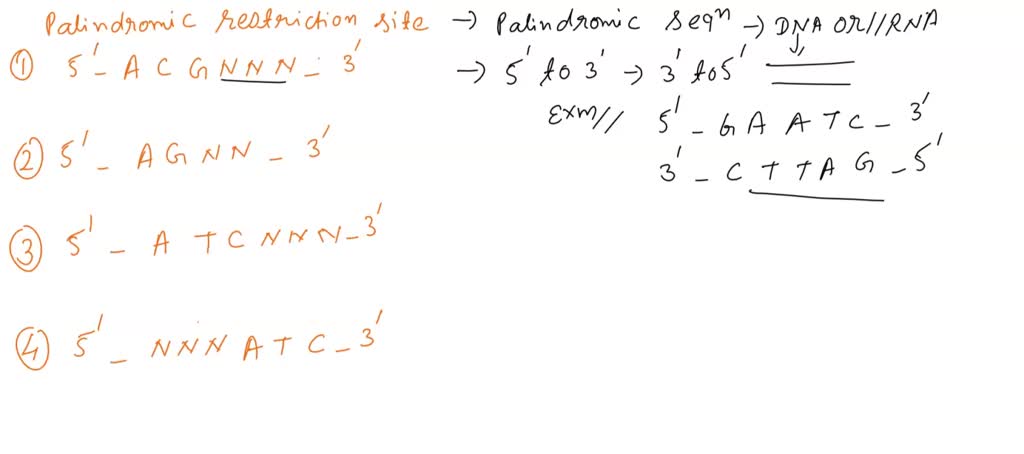 Palindromic restriction site → Palindromic seqⁿ → DNA OR//RNA
① 5' - A C G N N N - 3'
→ 5' to 3' → 3' to 5'
Exm// 5' - G A A T C - 3'
3' - C T T A G - 5'
② 5' - A G N N - 3'
③ 5' - A T C N N N - 3'
④ 5' - N N N A T C - 3'